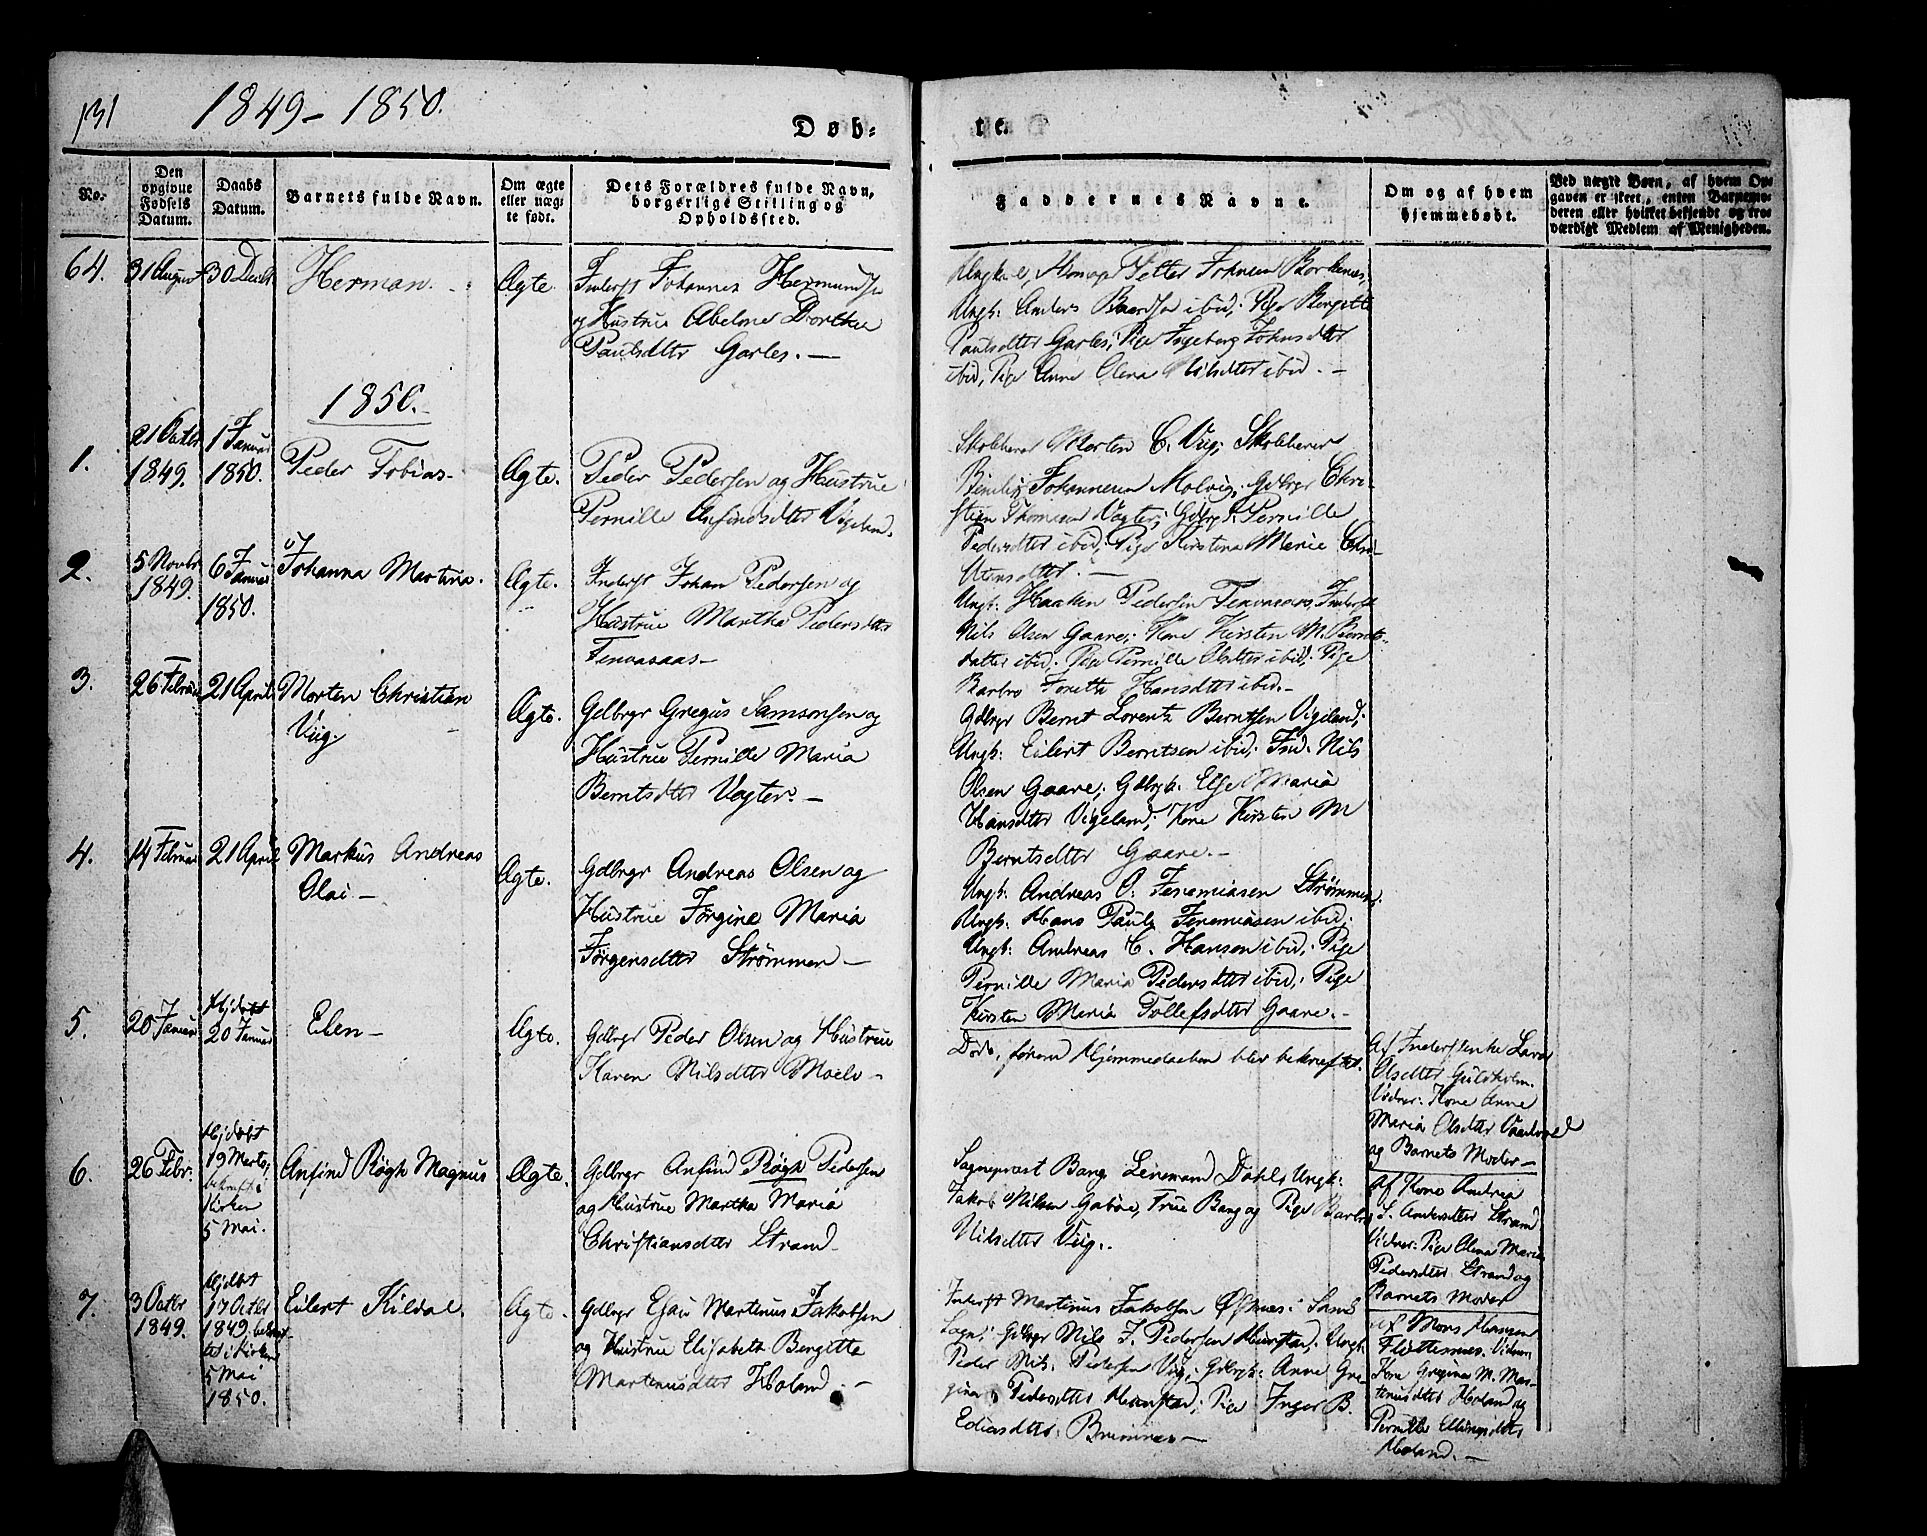 131
1849 - 1850.
Døb-
te.
No.
Den opgivne Fødsels Datum.
Daabs Datum.
Barnets fulde Navn.
Om ægte eller uægte født.
Dets Forældres fulde Navn, borgerlige Stilling og Opholdssted.
Faddernes Navne.
Om og af hvem hjemmedøbt.
Ved uægte Børn, af hvem Opgaven er skeet, enten Barnemoderen eller hvilket bekjendt og troværdigt Medlem af Menigheden.
64.
31 August
30 Decbr
Herman.
Ægte.
Inderst Johannes Hermundsen
og Hustrue Abelone Dorthea
Paulsdtter Garles. —
Ungkarl
Johnsen Borkenes,
Ungk: Anders Baardsen ibid; Pige Bergitte
Paulsdtter Garles; Pige Ingeborg Johnsdtter
ibid, Pige Anne Olena Nilsdtter ibid. —
1850.
1.
21 Octbr
1849.
1 Januar
1850.
Peder Tobias.
Ægte.
Peder Pedersen og Hustrue
Pernille Anfindsdtter Vigeland.
Skoleherer Morten C. Viig; Skoleherer
Johannesen Molvig; Gdbrgr Chri-
stian Thomesen Vagter; Gdbrgk: Pernille
Pedersdtter ibid; Pige Kirstina Marie Chri-
stensdtter. —
2.
5 Novbr
1849.
6 Januar
1850.
Johanna Martina.
Ægte.
Inderst Johan Pedersen og
Hustrue Martha Pedersdtter
Tenvasaas —
Ungk: Haaken Pedersen Tenvasaas, Inderst
Nils Olsen Gaare; Kone Kirsten M. Bernts-
datter ibid; Pige Pernille Olsdtter ibid; Pige
Barbro Joretta Hansdtter ibid. —
3.
26 Februar
21 April
Morten Christian
Viig.
Ægte.
Gdbrgr Gregus Samsonsen og
Hustrue Pernille Maria
Berntsdtter Vagter. —
Gdbrgr Bernt Lorentz Berntsen Vigeland;
Ungk: Eilert Berntsen ibid; Ind: Nils
Olsen Gaare; Gdbrgk: Else Maria
Hansdtter Vigeland; Kone Kirsten M
Berntsdtter Gaare. —
4.
14 Februar
21 April
Markus Andreas
Olai —
Ægte.
Gdbrgr Andreas Olsen og
Hustrue Jørgine Maria
Jørgensdtter Strømmen —
Ungk: Andreas O. Jeremiasen Strømmen;
Ungk: Hans Paul Jeremiasen ibid;
Ungk: Andreas C. Hansen ibid; Pige
Pernille Maria Pedersdtter ibid; Pige
Kirsten Maria Tollefsdtter Gaare. —
5.
20 Januar
Hjdøbt
20 Januar
Elen —
Ægte.
Gdbrgr Peder Olsen og Hustrue
Karen Nilsdtter Moelv —
Død, førend Hjemmedaaben blev bekræftet.
Af Inderstenke
Olsdtter Guldholm.
Vidner: Kone Anne
Maria Olsdtter
og Barnets Moder —
6.
26 Febr.
Hjdøbt
19 Marts,
bekræft i
Kirken
5 Mai.
Anfind Røgh Magnus
Ægte.
Gdbrgr Anfind Røgh Pedersen
og Hustrue Martha Maria
Christiansdtter Strand
Sognepræst Bang, Lensmand Dahl, Ungk:
Jakob Nilsen Gabøe, Frue Bang og Pige Barbro
Nilsdtter Viig.
Af Kone Andrea
S. Andersdtter Strand
Vidner: Pige Olena Maria
Pedersdtter Strand og
Barnets Moder
7.
3 Octbr
1849.
Hjdøbt
17 Octbr
1849, bekræf-
tet i Kirken
5 Mai
1850.
Eilert Kildal.
Ægte.
Gdbrgr Esau Martinus Jakobsen
og Hustrue Elisabeth Bergitta
Martinusdtter Holand. —
Inderst Martinus Jakobsen Øxnes;
Gdbrgr Nils J. Pedersen
Ungk:
Peder Nils. Pedersen Viig; Gdbrgk: Anne Gre-
gina Pedersdtter
Pige Inger B.
Ediasdtter Breines —
af Mons Monsen
Flottennes. Vidner:
Kone Gregina M. Mar-
tinusdtter Holand og
Pernille Ellingsdtter
Holand. —